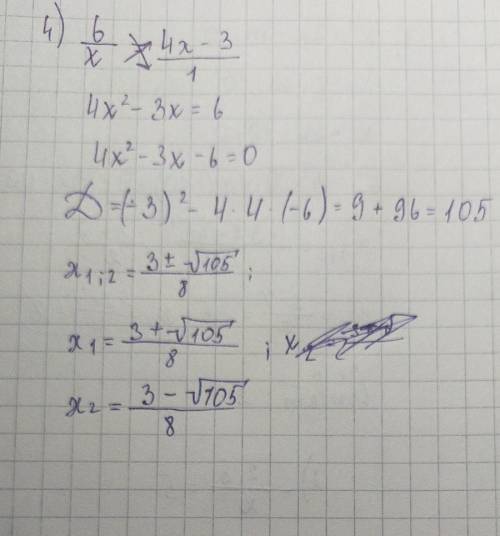 4) 6/x = (4x - 3)/1
4x² - 3x = 6
4x² - 3x - 6 = 0
D = (-3)² - 4 · 4 · (-6) = 9 + 96 = 105
x₁;₂ = (3 ± √105)/8 ;
x₁ = (3 + √105)/8 ; x
x₂ = (3 - √105)/8